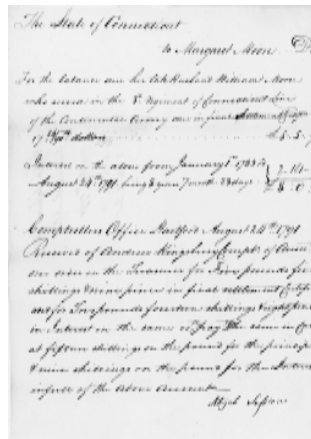 The State of Connecticut
to Margaret Moon D
For the balance due her late Husband William Moon
who served in the 5 Regiment of Connecticut Line
of the Continental Army one in final
17 /90th dollars £ 5. 5. 
Interest on the above from January 1st 1783 to
August 24th 1791 being 8 years 7 month 23 days 2. 14
£ 8. 0
Comptrollers Office Hartford August 24th 1791
Received of Andrew Kingsbury Compt of
an order on the Treasurer for Five pounds five
shillings & nine pence in final settlement Certific
and for Two pounds fourteen shillings & eight pence
in Interest on the same
at fifteen shillings on the pound for the principal
& nine shillings on the pound for the Interest
in full of the above Account
Abijah Sessions